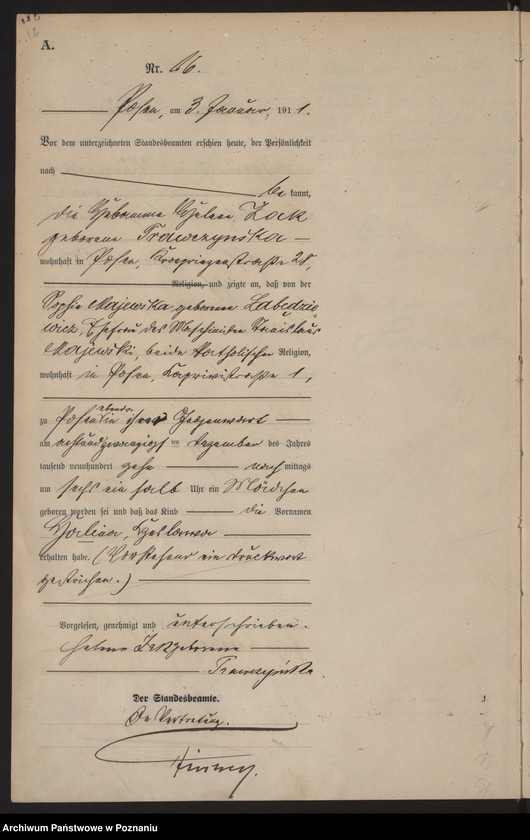 A.
Nr. 66.
Posen, am 3. Januar 1911.
Vor dem unterzeichneten Standesbeamten erschien heute, der Persönlichkeit
nach be kannt,
die Hebamme Helene Zak
geborene Trawczynska
wohnhaft in Posen, 28,
Religion, und zeigte an, daß von der
Sophie Majewska, geborene Labedzie-
wicz, Ehefrau des Maschinisten Stanislaus
Majewski, beide katholischer Religion,
wohnhaft in Posen, Kaprivistraße 1,
zu Posen ebenda in ihrer Gegenwart
am achtundzwanzigsten Dezember des Jahres
tausend neunhundert zehn nach mittags
um sechs ein halb Uhr ein Mädchen
geboren worden sei und daß das Kind die Vornamen
Halina, Czeslawa
erhalten habe. (Vorstehend ein Druckwort
gestrichen.)
Vorgelesen, genehmigt und unterschrieben.
Helene Zak geborene
Trawczyńska.
Der Standesbeamte.
In Vertretung.
Archiwum Państwowe w Poznaniu